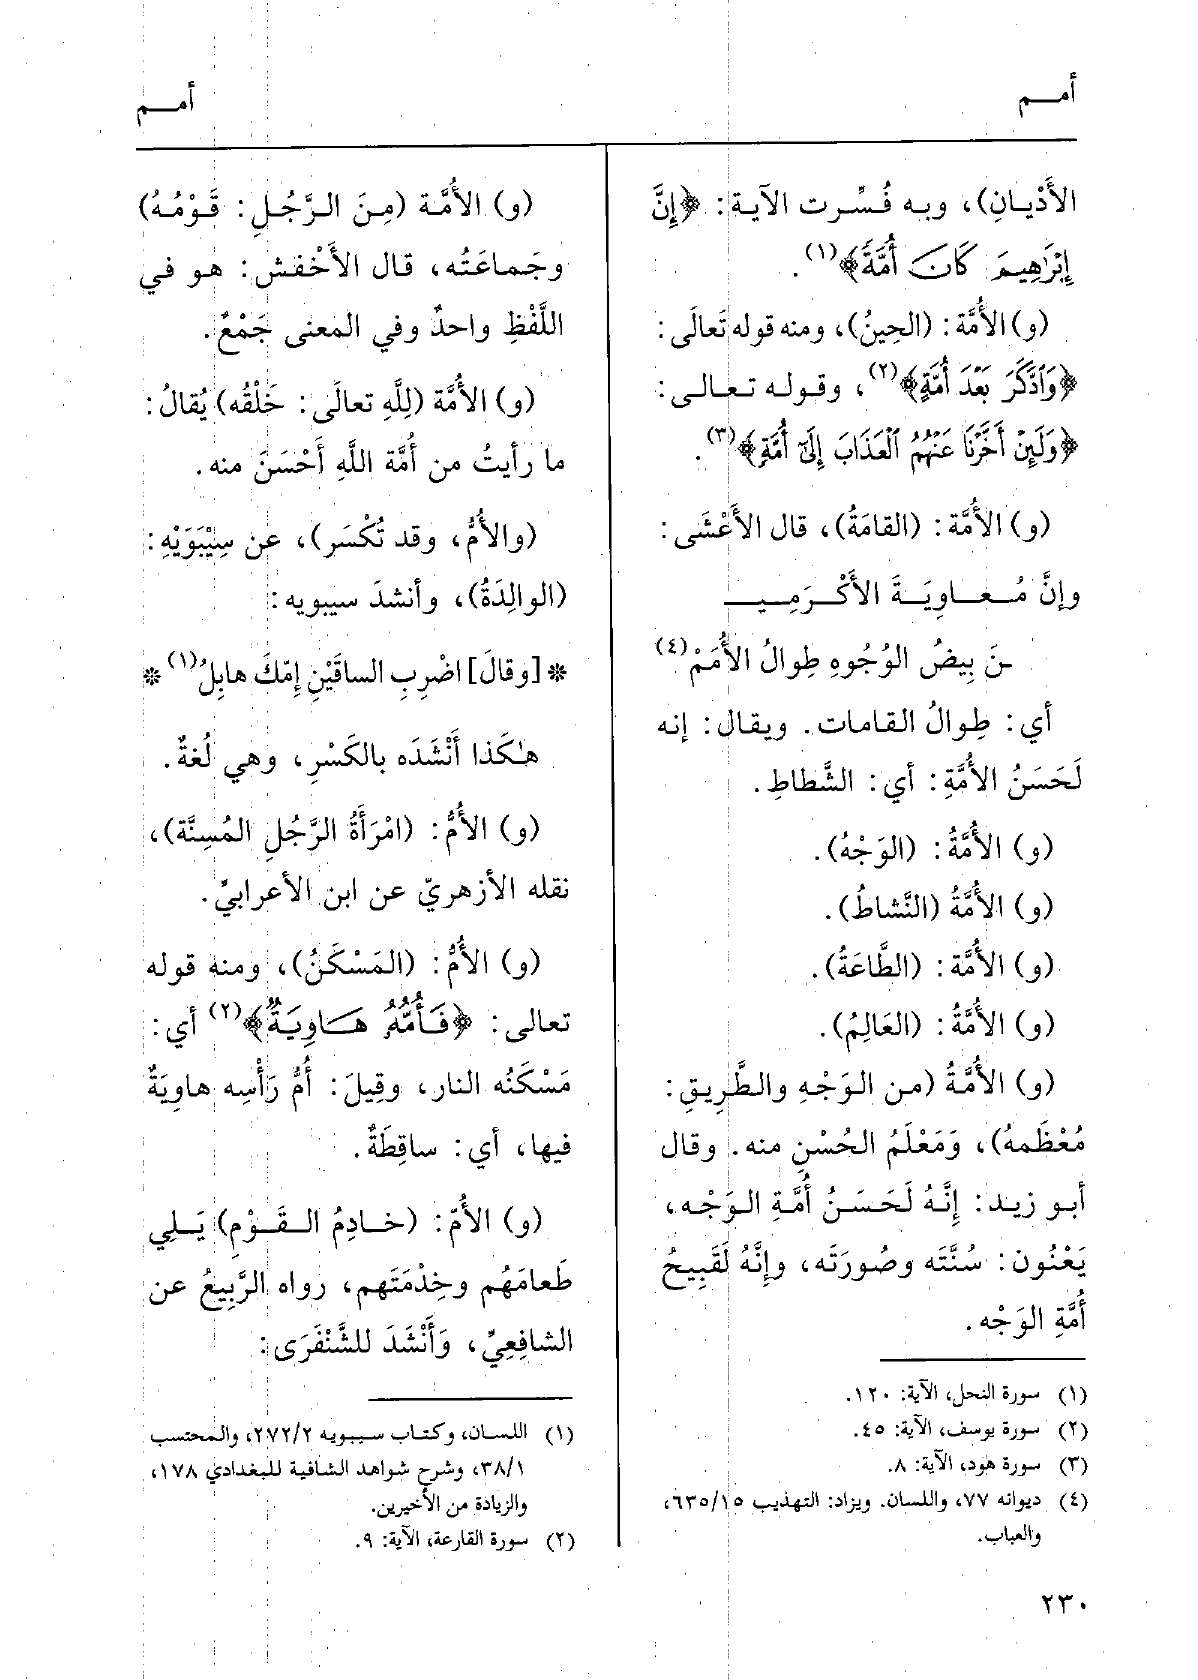 أمـــم
أمـــم
الأَدْيـانِ)، وبـه فُـسِّـرت الآيـة: ﴿إِنَّ
إِبْرَٰهِيمَ كَانَ أُمَّةً﴾(١).
(و) الأُمَّة: (الحِينُ)، ومنه قوله تَعالَى:
﴿وَٱدَّكَرَ بَعْدَ أُمَّةٍ﴾(٢)، وقـولـه تـعـالـى:
﴿وَلَئِنْ أَخَّرْنَا عَنْهُمُ ٱلْعَذَابَ إِلَىٰٓ أُمَّةٍ﴾(٣).
(و) الأُمَّة: (القامَةُ)، قال الأَعْشَى:
وإنَّ مُـعـاوِيَـةَ الأَكْـرَمِـيـ
ـنَ بِيضُ الوُجُوهِ طِوالُ الأُمَمْ(٤)
أي: طِوالُ القامات. ويقال: إنه
لَحَسَنُ الأُمَّةِ: أي: الشَّطاطِ.
(و) الأُمَّةُ: (الوَجْهُ).
(و) الأُمَّةُ (النَّشاطُ).
(و) الأُمَّة: (الطَّاعَةُ).
(و) الأُمَّةُ: (العَالِمُ).
(و) الأُمَّةُ (من الوَجْهِ والطَّرِيقِ:
مُعْظَمهُ)، وَمَعْلَمُ الحُسْنِ منه. وقال
أبـو زيـد: إنَّهُ لَحَـسَـنُ أُمَّةِ الـوَجْـه،
يَعْنُون: سُنَّتَه وصُورَتَه، وإنَّهُ لَقَبِيحُ
أُمَّةِ الوَجْه.
(١) سورة النحل، الآية: ١٢٠.
(٢) سورة يوسف، الآية: ٤٥.
(٣) سورة هود، الآية: ٨.
(٤) ديوانه ٧٧، واللسان. ويزاد: التهذيب ٦٣٥/١٥،
والعباب.
٢٣٠
(و) الأُمَّـة (مِـنَ الـرَّجُـلِ: قَـوْمُـهُ)
وجَـماعَتُه، قال الأَخْفش: هـو في
اللَّفْظِ واحدٌ وفي المعنى جَمْعٌ.
(و) الأُمَّة (لِلَّهِ تعالَى: خَلْقُه) يُقالُ:
ما رأيتُ من أُمَّة اللَّهِ أَحْسَنَ منه.
(والأُمُّ، وقد تُكْسَر)، عن سِيْبَوَيْهِ:
(الوالِدَةُ)، وأنشدَ سيبويه:
* [وقالَ] اضْرِبِ الساقَيْنِ إِمّكَ هابِلُ(١) *
هـٰكَذا أَنْشَدَه بالكَسْرِ، وهي لُغةٌ.
(و) الأُمُّ: (امْرَأَةُ الرَّجُلِ المُسِنَّة)،
نقله الأزهريّ عن ابن الأعرابيِّ.
(و) الأُمُّ: (المَسْكَنُ)، ومنه قوله
تعالى: ﴿فَأُمُّهُۥ هَاوِيَةٌ﴾(٢) أي:
مَسْكَنُه النار، وقِيلَ: أُمُّ رَأْسِه هاوِيَةٌ
فيها، أي: ساقِطَةٌ.
(و) الأُمّ: (خـادِمُ الـقَـوْمِ) يَـلِي
طَعامَهُم وخِدْمَتَهم، رواه الرَّبِيعُ عن
الشافِعِيِّ، وَأَنْشَدَ للشَّنْفَرَى:
(١) اللسان، وكتاب سيبويه ٢٧٢/٢، والمحتسب
٣٨/١، وشرح شواهد الشافية للبغدادي ١٧٨،
والزيادة من الأخيرين.
(٢) سورة القارعة، الآية: ٩.